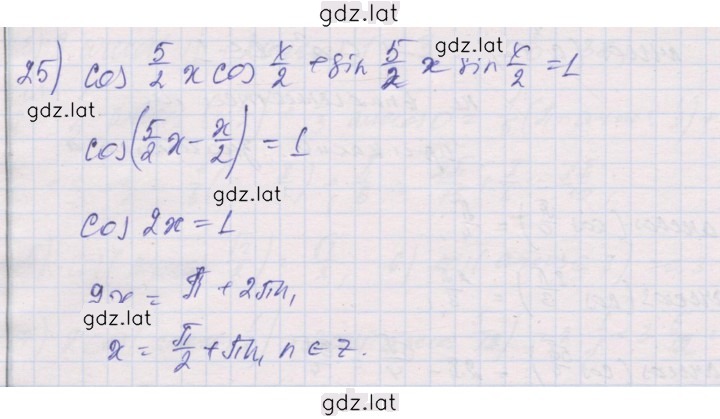 gdz.lat
25) cos 5/2 x cos x/2 + sin 5/2 x sin x/2 = 1
gdz.lat
gdz.lat
cos(5/2 x - x/2) = 1
gdz.lat
cos 2x = 1
2x = π + 2πn,
gdz.lat
x = π/2 + πn, n ∈ Z.
gdz.lat